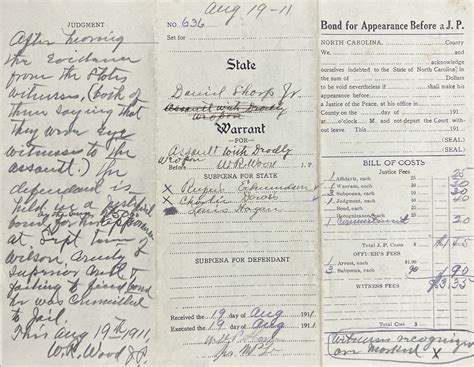 JUDGMENT
After hearing
the Evidence
from the States
witnesses, (both of
them saying that
they were Eye
witnesses to the
assault.) The
defendant is
held in a
bond for his appearance
at Sept term of
Wilson County
Superior Court &
failing to give bond
he was Committed
to Jail.
This Aug 19th 1911,
W.R. Wood J.P.
Aug 19-11
No. 636
Set for
State
Daniel Sharp Jr.
Assault with Deadly
Weapon
Warrant
—FOR—
Assault with Deadly
Weapon
W.R. Wood J. P.
SUBPŒNA FOR STATE
x Rufus Edmundson
x Charlie
Louis
SUBPŒNA FOR DEFENDANT
Received the 19 day of Aug 191
Executed the 19 day of Aug 191
Bond for Appearance Before a J. P.
NORTH CAROLINA, County
We, and
acknowledge
ourselves indebted to the State of North Carolina, in
the sum of Dollars
to be void nevertheless if shall make his
appearance before
a Justice of the Peace, at his office in
County on the day of 191
at o'clock M. and not depart the Court with-
out leave. This 191
(SEAL)
(SEAL)
BILL OF COSTS
Justice Fees
1 Affidavit, each 25
2 Warrant, each
3 Subpœna, each
1 Judgment, each 40
Bond, each
Recognizance, each
1 Commitment 20
Total J. P. Costs
OFFICER'S FEES
1 Arrest, each $1.00
3 Subpœna, each .30 90
WITNESS FEES
Total Cost $
Witness recognizance
are marked X